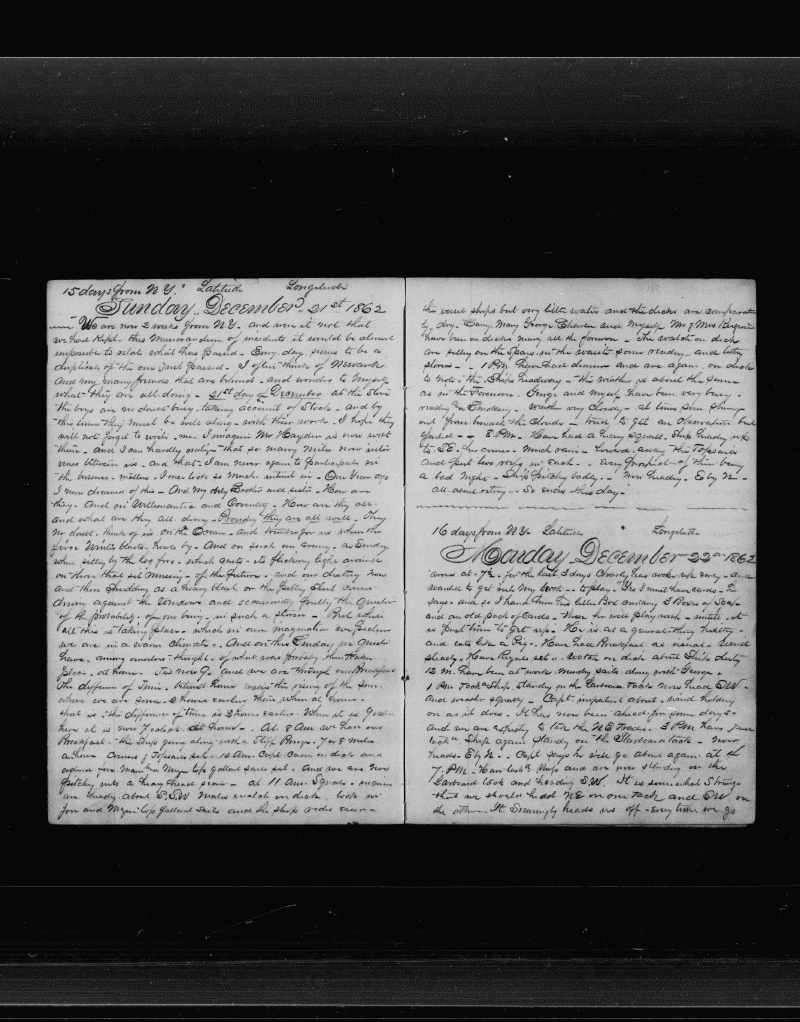 15 days from N.Y. Latitude Longitude
Sunday December 21st 1862
We are now 2 weeks from N.Y. and were it not that
we had kept this Memorandum of incidents it would be almost
impossible to relate what has passed. Every day seems to be a
duplicate of the one just passed. I often think of Newark
and my many friends that are there and wonder to myself
what they are all doing - 21st day of December at the Store
the boys are no doubt busy taking account of Stock - and by
this time they must be well along with their work. I hope they
will not forget to write me. I imagine Mr Hayden is over with
them, and I can hardly realize that so many miles now inter
venes between us, and that I am never again to participate in
the business. One Year ago
I never dreamed of this - And my Brother and sister - How are
they - And in Willimantic and Coventry - How are they all
and what are they all doing - Providing they are all well. They
no doubt think of us on the Ocean - and tremble for us when the
fierce Winter blasts howls by - And on such an evening as Sunday
when sitting by the log fire - which casts its flickering light around
on those that sit musing - of the future - and our destiny
and then
driving against the Windows and
of the probability of our being in such a storm - But while
all this is taking place - which in our imagination we picture
we are in a warm climate - And on this Sunday in question
have, among
place at home - Tis now 9 and we are through our Breakfast
The difference of Time makes the rising of the sun
where we are some 2 hours earlier than when at home -
that is the difference of time is 2 hours earlier - When it is
here it is now 7 oclock at home - At 8 AM we had our
Breakfast - the Ship going along with a Stiff Breeze - 7 or 8 miles
an hour - Courses & Topsails set - 10 Am Capt came on deck and
ordered fore Main & Mizen top gallant sails set - And we are now
pitching into a heavy head sea - at 11 Am Squals - again
are heading about S.S.W Mates watch on deck, took in
fore and Mizen top gallant sails and the ship rides easier -
the vessel ships but very little water and the decks are comparativ
ly dry. Mary George Charlie and myself Mr & Mrs
have been on deck nearly all the forenoon - The watch on deck
are sitting on the Spars in the waist some reading and telling
stories. - 1 P.M. have had dinner and are again on deck
to note the Ships headway - the weather is about the same
as in the forenoon. George and myself have been very busy
reading & smoking. Weather very cloudy - at times Sun shines
out from beneath the Clouds - tried to get an Observation but
failed - 8 P.M. Have had a heavy squall. Ship heading up
to S.E. her course. Much rain - Lowered away the Topsails
and put two reefs in each. Every prospect of this being
a bad night - Ship pitching badly. - Now heading E by N -
all about retiring. - So ends this day -
16 days from N.Y. Latitude " Longitude
Monday December 22nd 1862
arose at 7½. for the last 3 days Charly has woke up early - and
wanted to get into my berth - to play. "Yes I must have cards" he
says - and so I hand him his little Box containing 2 Boxes of Soap
and an old pack of Cards - These he will play with - until it
is just time to get up - He is as a general thing healthy -
and eats like a Pig - Have had Breakfast as usual - Wind
steady - Have Royals set - watch on deck about Ships duty
12 M. have been at work mending sails along with George -
1 P.M. Tack Ship, standing on the Larboard Tack now head S.W.
And weather squally - Capt. impatient about wind holding
on as it does. It has now been ahead for some days -
And we are expecting to take the N.E. Trades. 3 P.M. have just
tackd Ship again Standing on the Starboard tack - Now
heads E by N - Capt says he will go about again at 4
7 P.M. Have tackd Ship and are now standing on the
Larboard tack and heading S.W. It is somewhat Strange
that we should head NE on one Tack and SW on
the other. It seemingly heads us off - every time we go